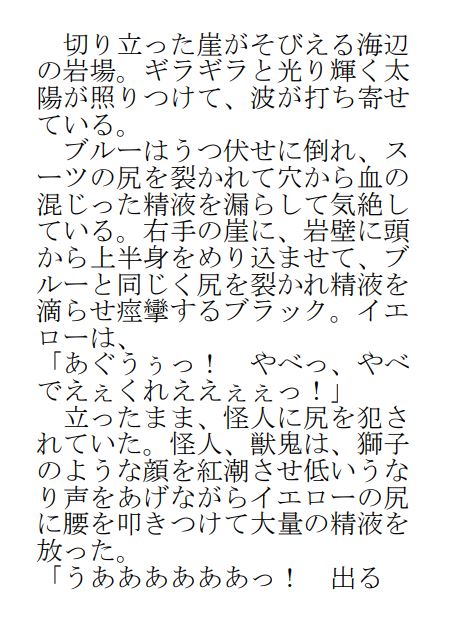 切り立った崖がそびえる海辺
の岩場。ギラギラと光り輝く太
陽が照りつけて、波が打ち寄せ
ている。
　ブルーはうつ伏せに倒れ、ス
ーツの尻を裂かれて穴から血の
混じった精液を漏らして気絶し
ている。右手の崖に、岩壁に頭
から上半身をめり込ませて、ブ
ルーと同じく尻を裂かれ精液を
滴らせ痙攣するブラック。イエ
ローは、
「あぐうぅっ！　やべっ、やべ
でえぇくれええぇぇっ！」
　立ったまま、怪人に尻を犯さ
れていた。怪人、獣鬼は、獅子
のような顔を紅潮させ低いうな
り声をあげながらイエローの尻
に腰を叩きつけて大量の精液を
放った。
「うああああああっ！　出る